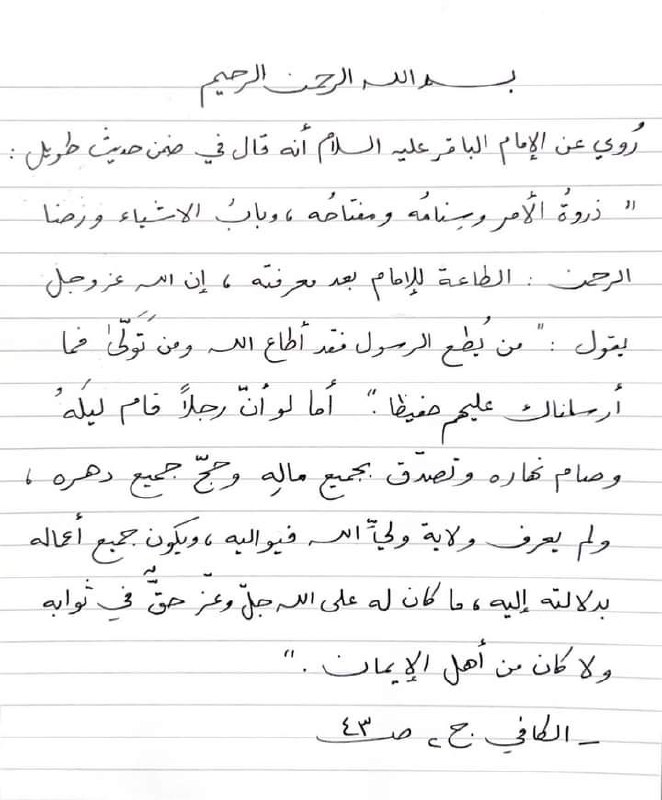 بسم الله الرحمن الرحيم
رُوي عن الإمام الباقر عليه السلام أنه قال في ضمن حديث طويل :
" ذروةُ الأمر وسِنامُه ومفتاحُه ، وبابُ الاشياء ورضا
الرحمن : الطاعة للإمام بعد معرفته ، إن الله عز وجل
يقول : " من يُطع الرسول فقد أطاع الله ومن تَوَلّىٰ فما
أرسلناك عليهم حفيظا . " أما لو أنّ رجلاً قام ليلَهُ
وصام نهاره وتصدّق بجميع مالِه وحجّ جميع دهره ،
ولم يعرف ولاية وليّ الله فيواليه ، ويكون جميع أعماله
بدلالته إليه ، ما كان له على الله جلّ وعزّ حقٌّ في ثوابه
ولا كان من أهل الإيمان . "
- الكافي ج ٢ ص ٤٣